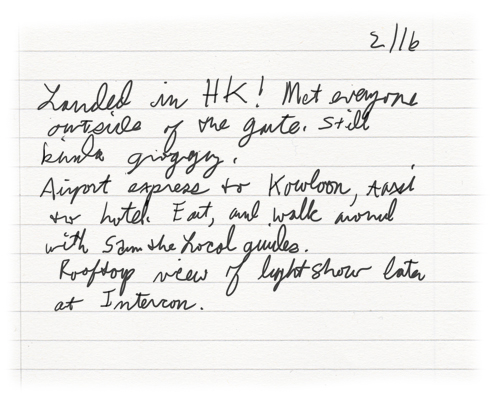 2/16
Landed in HK! Met everyone
outside of the gate. Still
kinda groggy.
Airport express to Kowloon, taxi
to hotel. Eat, and walk around
with Sam the Local guides.
Rooftop view of lightshow later
at Intercon.